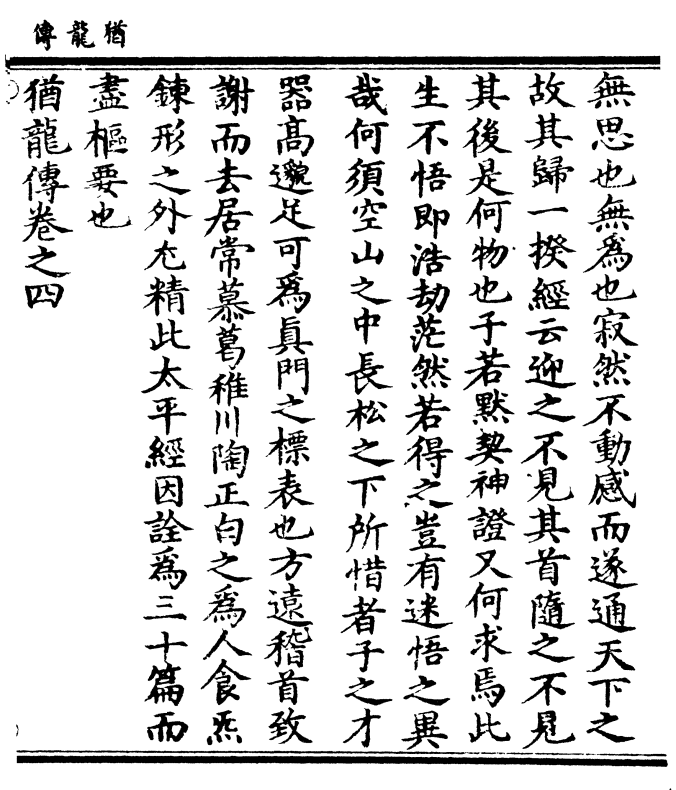 猶龍傳
無思也無爲也寂然不動感而遂通天下之
故其歸一揆經云迎之不見其首隨之不見
其後是何物也子若默契神證又何求焉此
生不悟即浩劫茫然若得之豈有迷悟之異
哉何須空山之中長松之下所惜者子之才
器高邈足可爲眞門之標表也方遠稽首致
謝而去居常慕葛稚川陶正白之爲人食炁
鍊形之外尢精此太平經因詮爲三十篇而
盡樞要也
猶龍傳卷之四